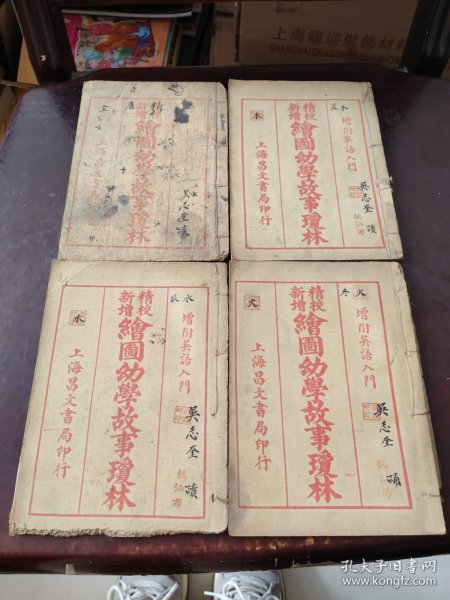 上海龍迎裝飾材料
SHANGHAI DRAGON DECORATION
精校
新增
繪圖幼學故事瓊林
吳志奎
水
增附英語入門
精校
新增
繪圖幼學故事瓊林
木
上海昌文書局印行
吳志奎 讀
水
增附英語入門
精校
新增
繪圖幼學故事瓊林
水
上海昌文書局印行
吳志奎 讀
火
增附英語入門
精校
新增
繪圖幼學故事瓊林
火
上海昌文書局印行
吳志奎 誦
孔夫子旧书网
www.kongfz.com